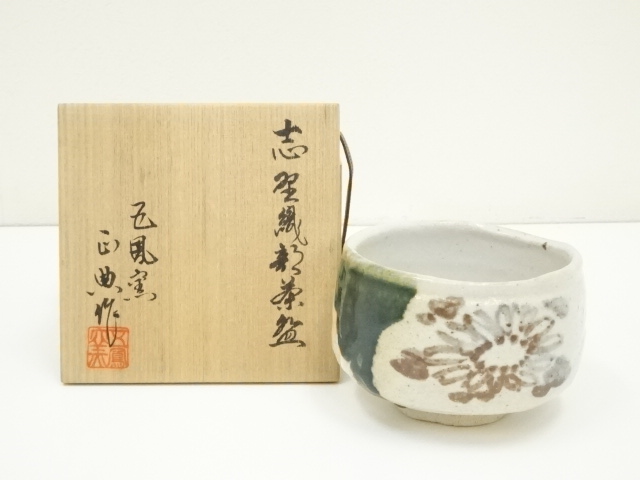 志野織部茶盌
五風窯
正典作